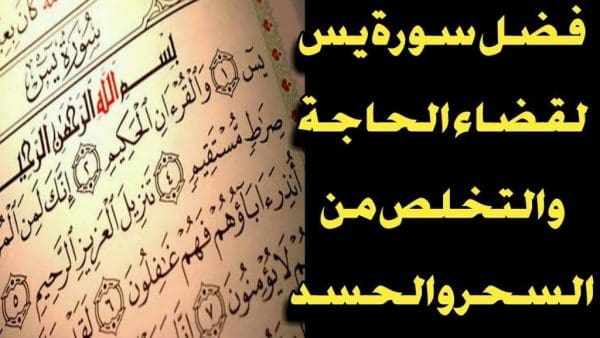 فضل سورة يس
لقضاء الحاجة
والتخلص من
السحر والحسد
سُورَةُ يسٓ
بِسْمِ اللَّهِ الرَّحْمَٰنِ
يسٓ ١ وَالْقُرْءَانِ الْحَكِيمِ ٢ إِنَّكَ لَمِنَ
صِرَٰطٍ مُّسْتَقِيمٍ ٤ تَنزِيلَ الْعَزِيزِ الرَّحِيمِ ٥
أُنذِرَ ءَابَآؤُهُمْ فَهُمْ غَٰفِلُونَ ٦ لَقَدْ
لَا يُؤْمِنُونَ ٧ إِنَّا